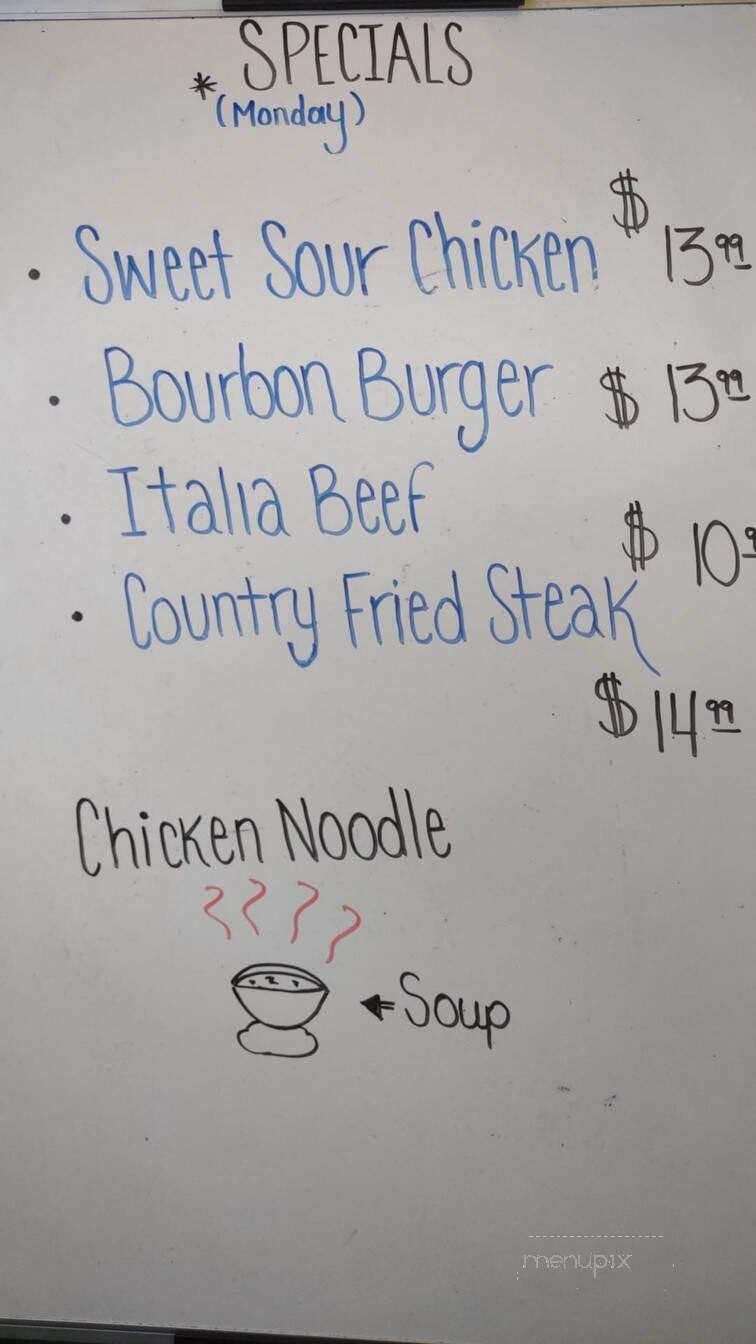 * SPECIALS
(Monday)
• Sweet Sour Chicken $ 13 99
• Bourbon Burger $ 13 99
• Italia Beef $ 10 9
• Country Fried Steak
$ 14 99
Chicken Noodle
Soup
menupix